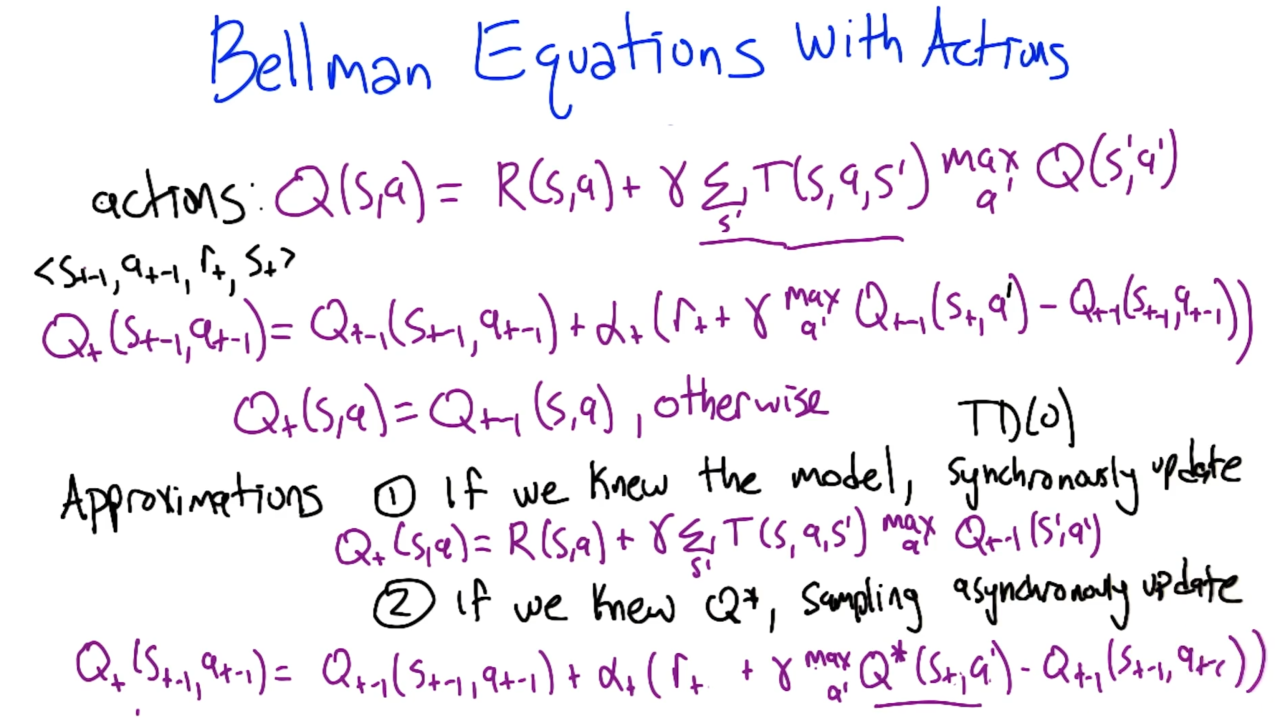 Bellman Equations With Actions
actions: Q(s,a) = R(s,a) + γ Σ_s' T(s,a,s') max_a' Q(s',a')
<s_t-1, a_t-1, r_t, s_t>
Q_t(s_t-1, a_t-1) = Q_t-1(s_t-1, a_t-1) + α_t (r_t + γ max_a' Q_t-1(s_t, a') - Q_t-1(s_t-1, a_t-1))
Q_t(s,a) = Q_t-1(s,a), otherwise
TD(0)
Approximations ① If we knew the model, synchronously update
Q_t(s,a) = R(s,a) + γ Σ_s' T(s,a,s') max_a' Q_t-1(s',a')
② If we knew Q*, sampling asynchronously update
Q_t(s_t-1, a_t-1) = Q_t-1(s_t-1, a_t-1) + α_t (r_t + γ max_a' Q*(s_t, a') - Q_t-1(s_t-1, a_t-1))